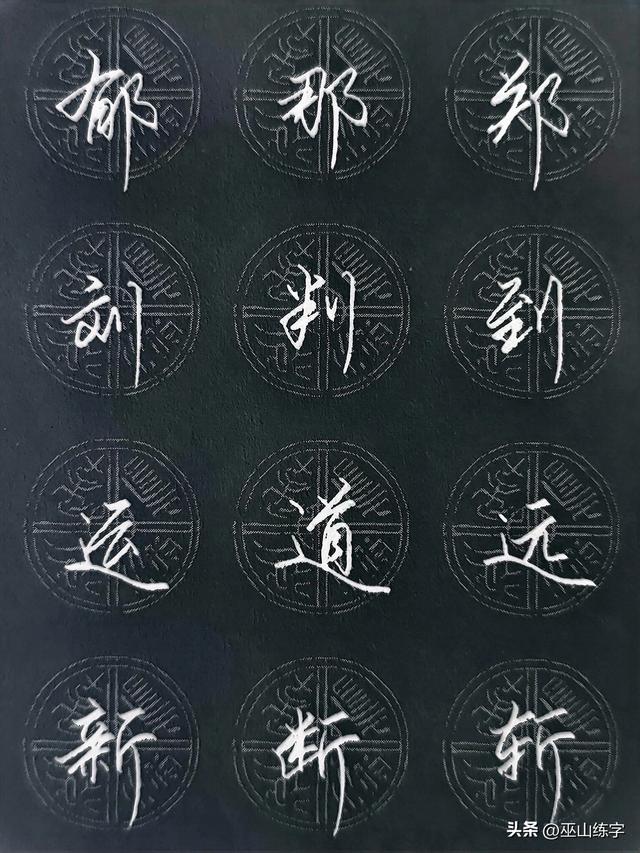 郁那郑
刘判到
运道远
新断斩
头条 @巫山练字